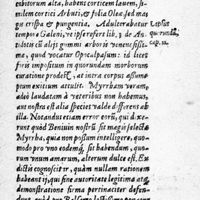 cubitorum alta, habens corticem leuem, si-
milem cortici Arbuti, & folia Oleæ, sed ma
gis crispa & pungentia. Adulterabatur
tempore Galeni, vt ipse refert lib. 1. de An-
tidotis cũ alijs gummi arboris venenosissi-
mæ, quod vocatur Opocalpasum: id licet
foris impositum in quorundam morborum
curatione prodest, at intra corpus assump-
tum exitium attulit. Myrrham vnram
adeò laudatam à veteribus non habemus,
aut nostra est alia species valde differens ab
illa. Notandus etiam error eorũ, qui dixe-
runt quòd Beniuin nostrũ sit magis selecta
Myrrha, quia non possum intelligere, quo-
modo pro vno eodemq́; sit habendum, quo-
rum vnum amarum, alterum dulce est. Ex
dictis cognoscitur, quàm nullam rationem
habeant ij, qui sine autoritate legitima aut
demonstratione firma pertinaciter defen-
Lapsus
quorundã.
cap. 22.